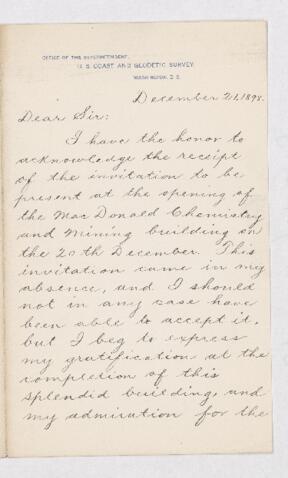 OFFICE OF THE SUPERINTENDENT,
U. S. COAST AND GEODETIC SURVEY,
WASHINGTON, D. C.
December 21, 1898.
Dear Sir:
I have the honor to
acknowledge the receipt
of the invitation to be
present at the opening of
the MacDonald Chemistry
and Mining building on
the 20th December. This
invitation came in my
absence, and I should
not in any case have
been able to accept it,
but I beg to express
my gratification at the
completion of this
splendid building, and
my admiration for the